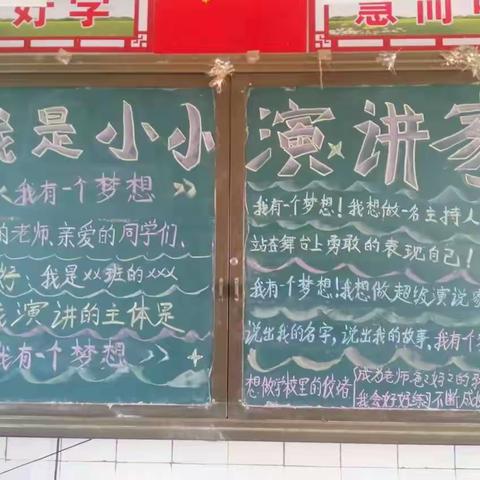 好学
急而
我是小小演讲家
《我有一个梦想》
的老师、亲爱的同学们、
好、我是xx班的xxx
我演讲的主体是
我有一个梦想》
我有一个梦想！我想做一名主持人
站在舞台上勇敢的表现自己！
我有一个梦想！我想做超级演说家
说出我的名字，说出我的故事、我有个
想做学校里的佼
成为老师爸
我会好好练习不断成